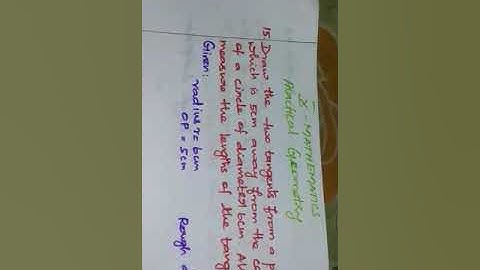 X - MATHEMATICS
Practical Geometry
15. Draw the two tangents from a
which is 5cm away from the
of a circle of diameter 6cm. Al
measure the lengths of the tang
Given:
radius r = 6cm
OP = 5cm
Rough